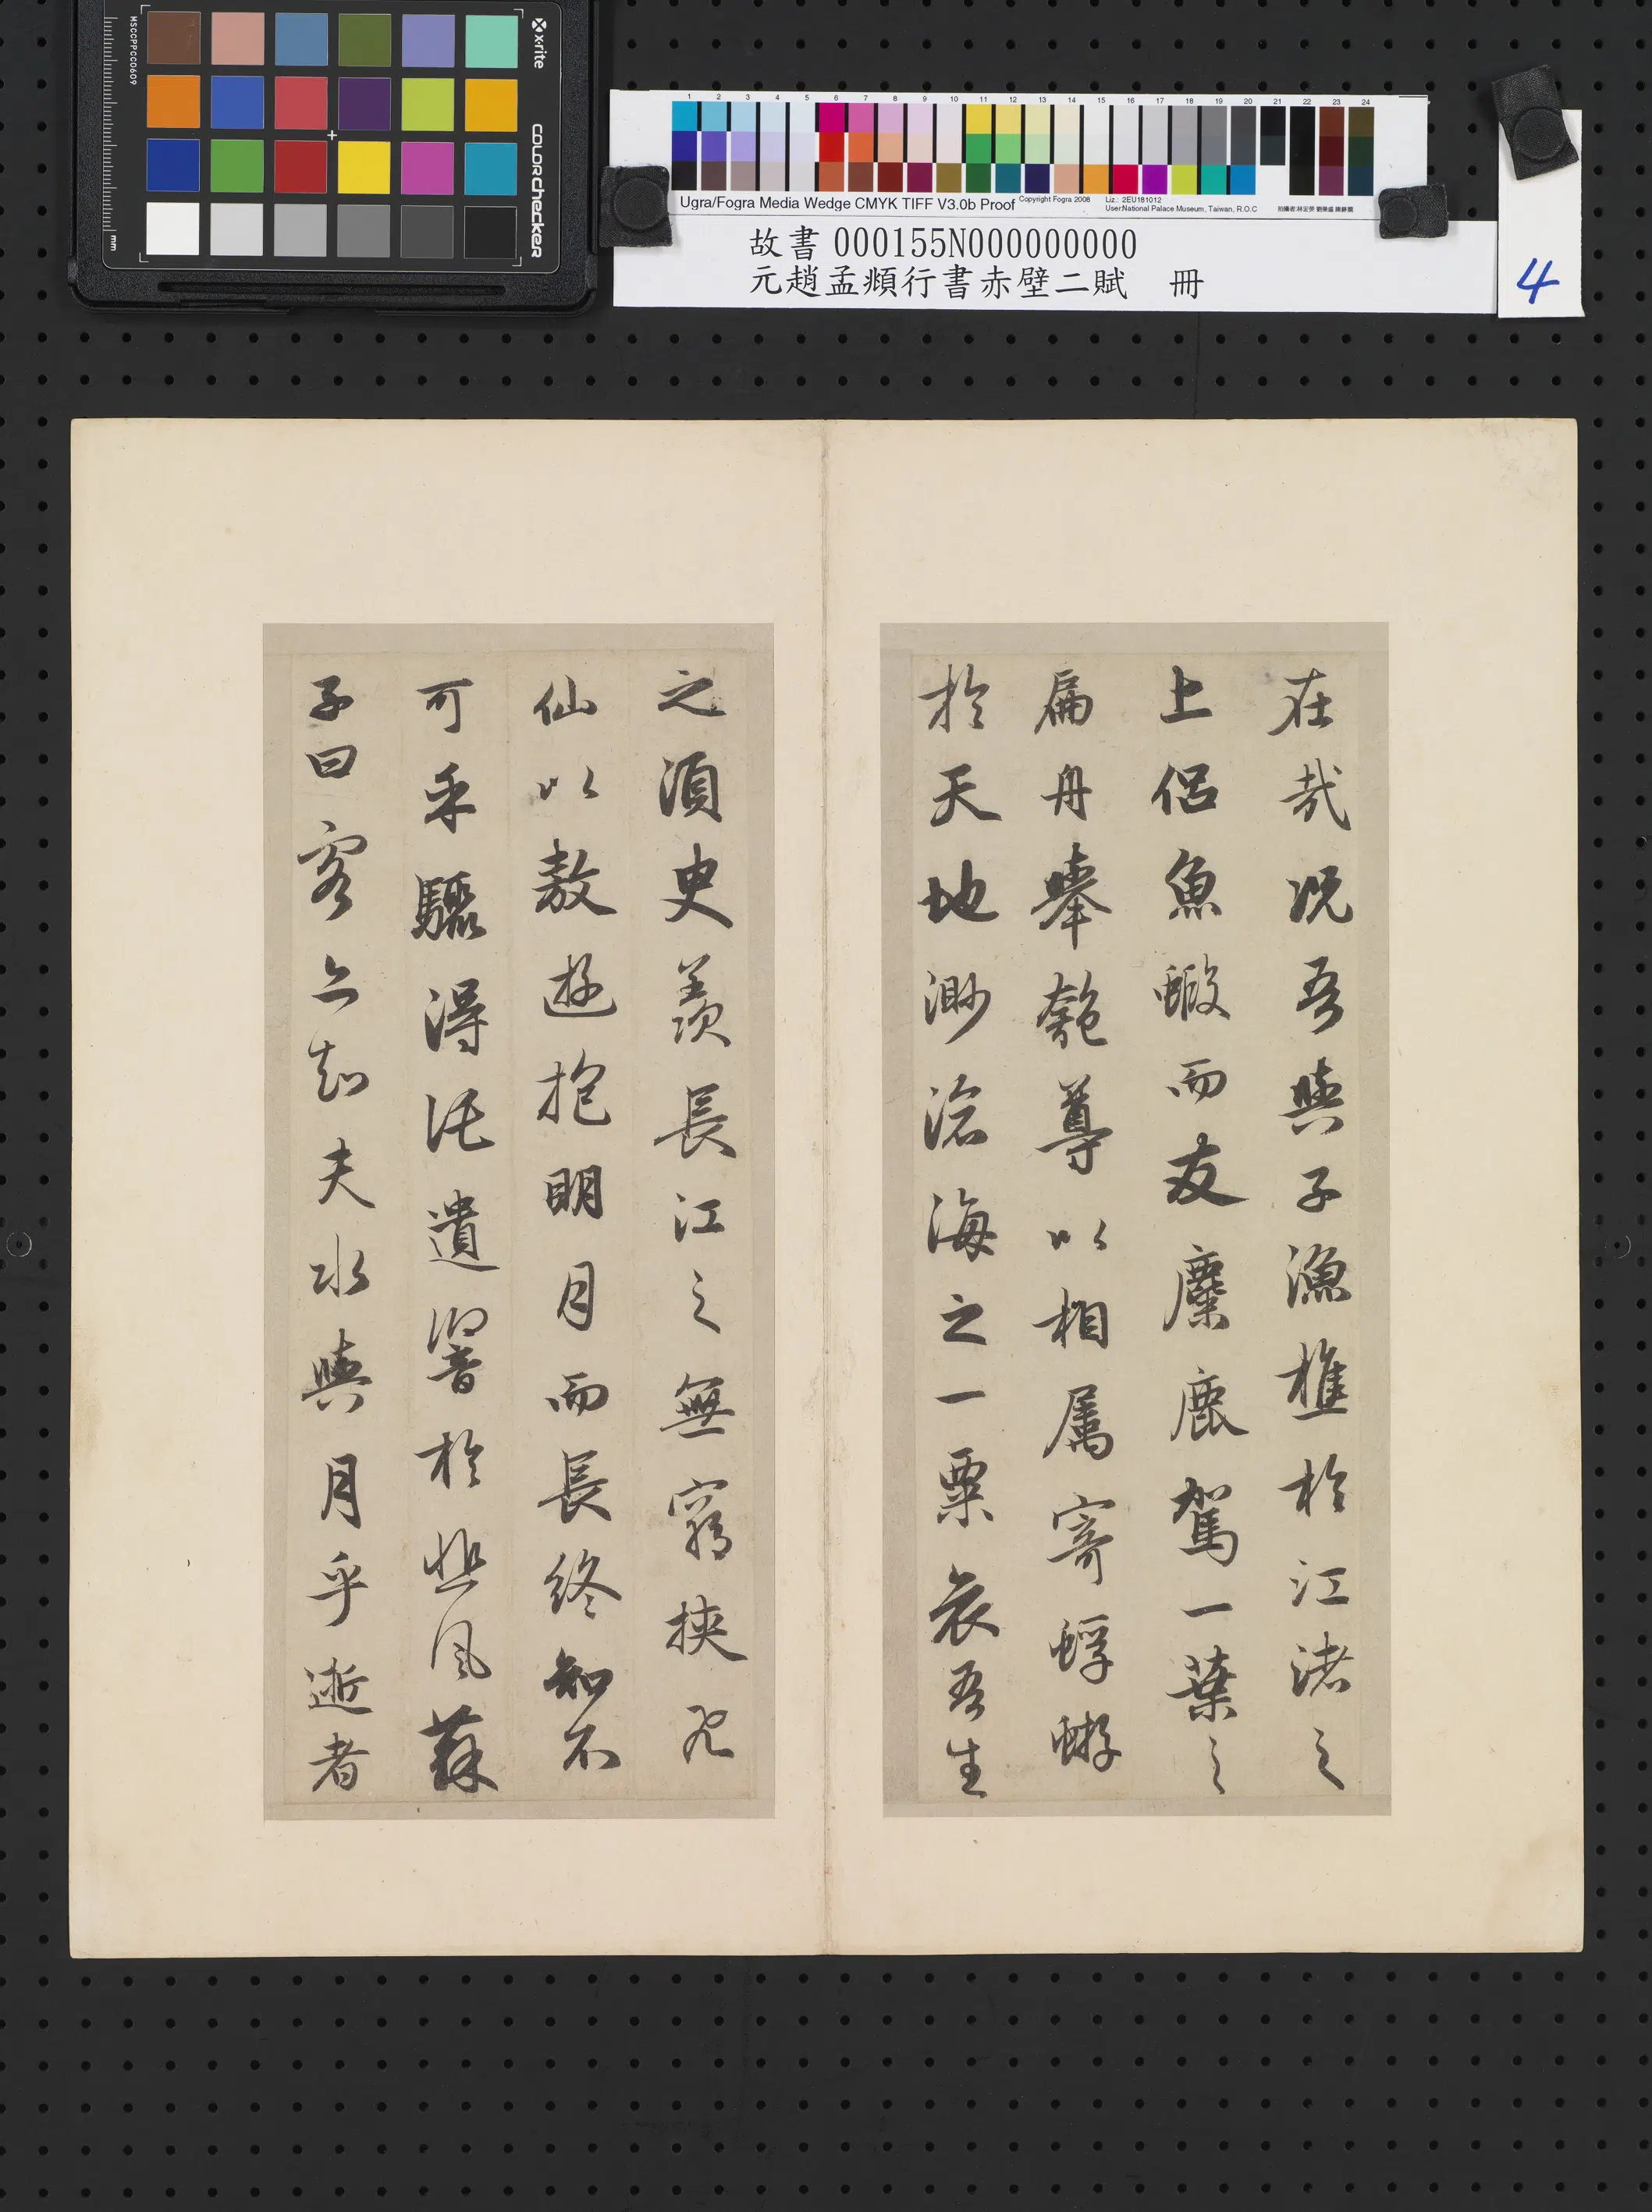 MSCCPPCC0609
x-rite
colorchecker
mm
1 2 3 4 5 6 7 8 9 10 11 12 13 14 15 16 17 18 19 20 21 22 23 24
Ugra/Fogra Media Wedge CMYK TIFF V3.0b Proof Copyright Fogra 2008 Liz.: 2EU181012
User:National Palace Museum, Taiwan, R.O.C
故書 000155N000000000
元趙孟頫行書赤壁二賦 冊
4
在哉况吾與子漁樵於江渚之
上侶魚蝦而友麋鹿駕一葉之
扁舟舉匏尊以相屬寄蜉蝣
於天地渺滄海之一粟哀吾生
之須臾羨長江之無窮挾飛
仙以敖遊抱明月而長終知不
可乎驟得託遺響於悲風蘇
子曰客亦知夫水與月乎逝者